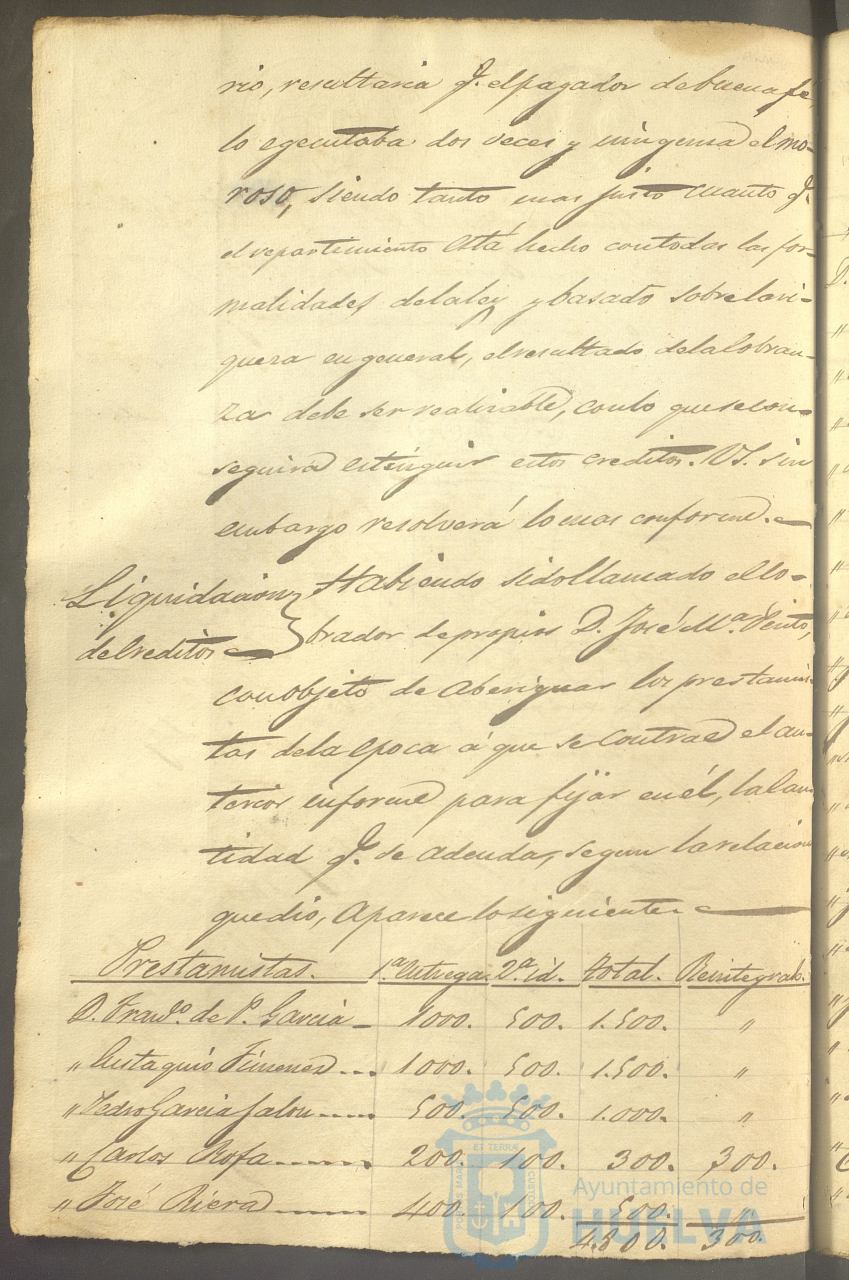 rio, resultaria q.e el pagador de buena fé,
lo egecutaba dos veces y ninguna el mo-
roso, siendo tanto mas justo cuanto q.e
el repartimiento está hecho con todas las for-
malidades de la ley y basado sobre la ri-
queza en general, el resultado de la cobran-
za debe ser realizable, con lo que se con-
seguirá estinguir estos creditos. VS. sin
embargo resolverá lo mas conforme.
Liquidacion
de Creditos
Habiendo sido llamado el co-
brador de propios D. José M.a Pinto,
con objeto de aberiguar los prestamis-
tas de la epoca á que se contrae el an-
terior informe para fijar en él, la can-
tidad q.e se adeuda, segun la relacion
que dio, aparece lo siguiente
Prestamistas. 1.a entrega. 2.a id. Total. Reintegrab.
D. Fran.co de P. Garcia 1000. 500. 1.500. "
" Eustaquio Jimenez 1000. 500. 1.500. "
" Pedro Garcia Jalon 500. 500. 1.000. "
" Carlos Rofa 200. 100. 300. 300.
" José Riera 400. 100. 500. "
4.800. 300.
Ayuntamiento de
HUELVA